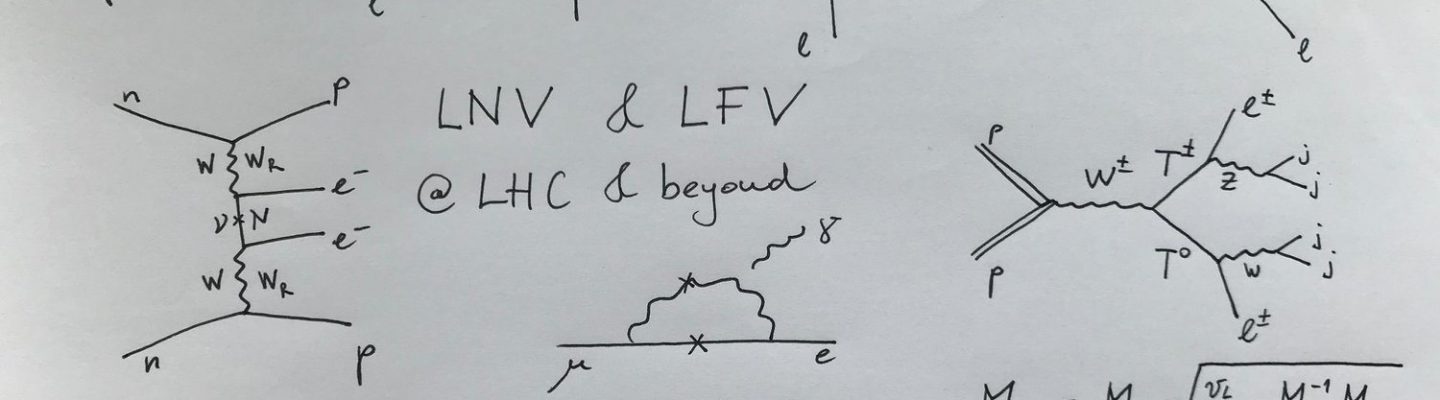 l
l
LNV & LFV
@ LHC & beyond
n p
W W_R
e⁻
ν N
e⁻
W W_R
n p
γ
μ e
p
W±
T±
l±
Z
j
j
T⁰
W
j
j
l±
p
M M √ v_L M⁻¹ M